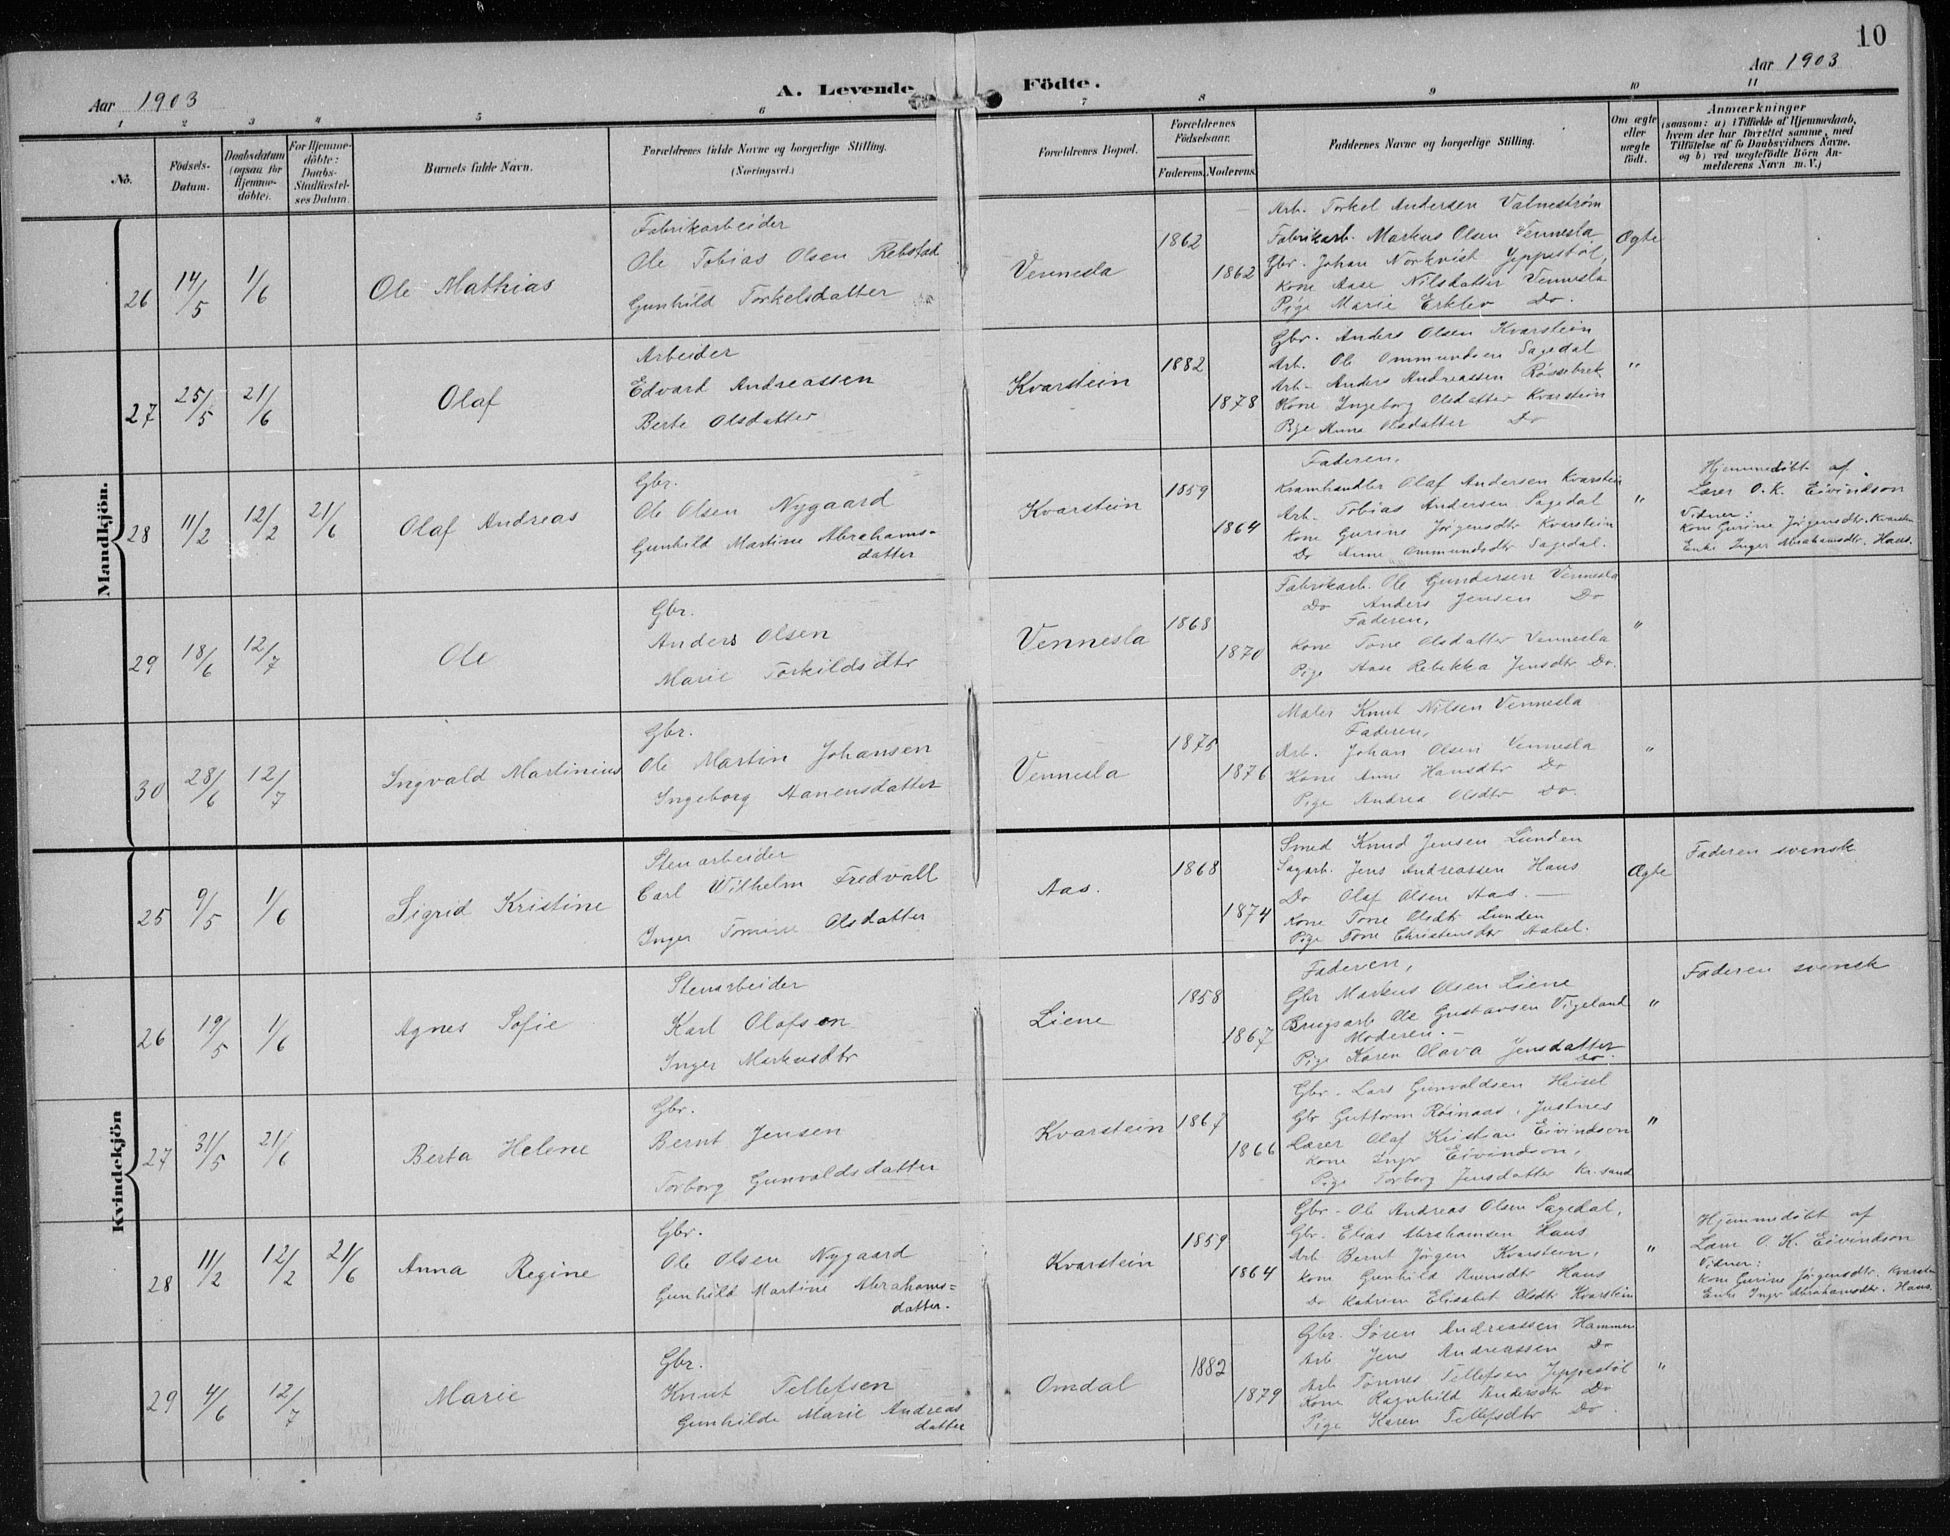 10
Aar 1903
A. Levende Födte.
Aar 1903
1 2 3 4 5 6 7 8 9 10 11
No.
Födsels-Datum.
Daabsdatum (ogsaa for Hjemmedöbte).
For Hjemmedöbte: Daabs-Stadfæstelses Datum.
Barnets fulde Navn.
Forældrenes fulde Navne og borgerlige Stilling.
(Næringsvei.)
Forældrenes Bopæl.
Forældrenes Födselsaar.
Faderens. Moderens.
Faddernes Navne og borgerlige Stilling.
Om ægte eller uægte födt.
Anmærkninger
(saasom: a) i Tilfælde af Hjemmedaab,
hvem der har forrettet samme, med
Tilföielse af to Daabsvidners Navne,
og b) ved uægtefödte Börn An-
melderens Navn m. V.)
Mandkjön.
26 14/5 1/6 Ole Mathias
Fabrikarbeider
Ole Tobias Olsen Rebstad
Gunhild Torkelsdatter
Vennesla 1862 1862
Arb. Torkel Andersen Valnestrøm
Fabrikarb. Markus Olsen Vennesla
Gbr. Johan Norkvist Jeppestöl,
Kone Aase Nilsdatter Vennesla
Pige Marie Erklev Do.
Ægte
27 25/5 21/6 Olaf
Arbeider
Edvard Andreassen
Berte Olsdatter
Kvarstein 1882 1878
Gbr. Anders Olsen Kvarstein
Arb. Ole Ommundsen Sagedal
Arb. Anders Andreassen Røssebrek
Kone Ingeborg Olsdatter Kvarstein
Pige Anna Olsdatter Do
"
28 11/2 12/2 21/6 Olaf Andreas
Gbr.
Ole Olsen Nygaard
Gunhild Martine Abrahams=
datter
Kvarstein 1859 1864
Faderen,
Kramhandler Olaf Andersen Kvarstein
Arb. Tobias Andersen Sagedal
Kone Gurine Jørgensdtr Kvarstein
Do Anne Ommundsdtr Sagedal.
"
Hjemmedöbt af
Lærer O. K. Eivindson
Vidner:
Kone Gurine Jørgensdtr. Kvarstein
Enke Inger Abrahamsdtr. Haus.
29 18/6 12/7 Ole
Gbr.
Anders Olsen
Marie Torkildsdtr
Vennesla 1868 1870
Fabrikarb. Ole Gundersen Vennesla
Do Anders Jensen Do
Faderen,
Kone Tone Olsdatter Vennesla
Pige Aase Rebekka Jensdtr Do.
"
30 28/6 12/7 Ingvald Martinius
Gbr.
Ole Martin Johansen
Ingeborg Aanensdatter
Vennesla 1875 1876
Maler Knut Nilsen Vennesla
Faderen,
Arb. Johan Olsen Vennesla
Kone Anne Hansdtr Do
Pige Andrea Olsdtr Do.
"
Kvindekjön
25 9/5 1/6 Sigrid Kristine
Stenarbeider
Carl Wilhelm Fredvall
Inger Tomine Olsdatter
Aas. 1868 1874
Smed Knud Jensen Lunden
Sagarb. Jens Andreassen Haus
Do Olaf Olsen Aas.
Kone Tone Olsdtr Lunden
Pige Tone Christensdtr Aabel.
Ægte
Faderen svensk
26 19/5 1/6 Agnes Sofie
Stenarbeider
Karl Olofson
Inger Markusdtr
Liene 1858 1867
Faderen,
Gbr Markus Olsen Liene
Brugsarb Ole Gustavsen Vigeland
Moderen.
Pige Karen Olava Jensdatter
Do.
"
Faderen svensk
27 31/5 21/6 Berta Helene
Gbr.
Bernt Jensen
Torborg Gunvaldsdatter
Kvarstein 1867 1866
Gbr. Lars Gunvaldsen Heisel
Gbr Guttorm Röinaas, Justnes
Lærer Olaf Kristian Eivindson
Kone Inger Eivindson,
Pige Torborg Jensdatter Kr.sand
"
28 11/2 12/2 21/6 Anna Regine
Gbr.
Ole Olsen Nygaard
Gunhild Martine Abrahams=
datter.
Kvarstein 1859 1864
Gbr. Ole Andreas Olsen Sagedal,
Gbr. Elias Abrahamsen Haus
Arb Bernt Jörgen Kvarstein,
Kone Gunhild Aanensdtr Haus
Do Katrine Elisabet Olsdtr Kvarstein
"
Hjemmedöbt af
Lærer O. K. Eivindson
Vidner:
Kone Gurine Jørgensdtr. Kvarstein
Enke Inger Abrahamsdtr. Haus.
29 4/6 12/7 Marie
Gbr.
Knut Tellefsen
Gunhilde Marie Andreas
datter
Omdal 1882 1879
Gbr. Sören Andreassen Hammen
Arb Jens Andreassen Do
Arb Tönnes Tellefsen Jeppestöl
Kone Ragnhild Andersdtr Do
Pige Karen Tellefsdtr Do
"